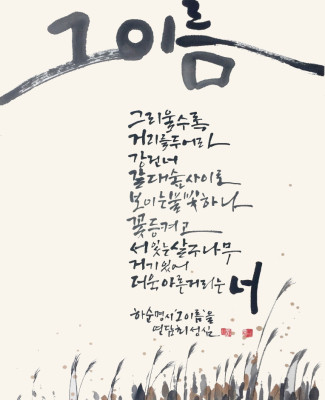 그 이름
그리울수록
거리를 두어라
강 건너
갈대숲 사이로
보이는 불빛 하나
꽃등 켜고
서 있는 살구나무
거기 있어
더욱 아픈 거리는 너
하순명 시 '그 이름'을
연담 최성심